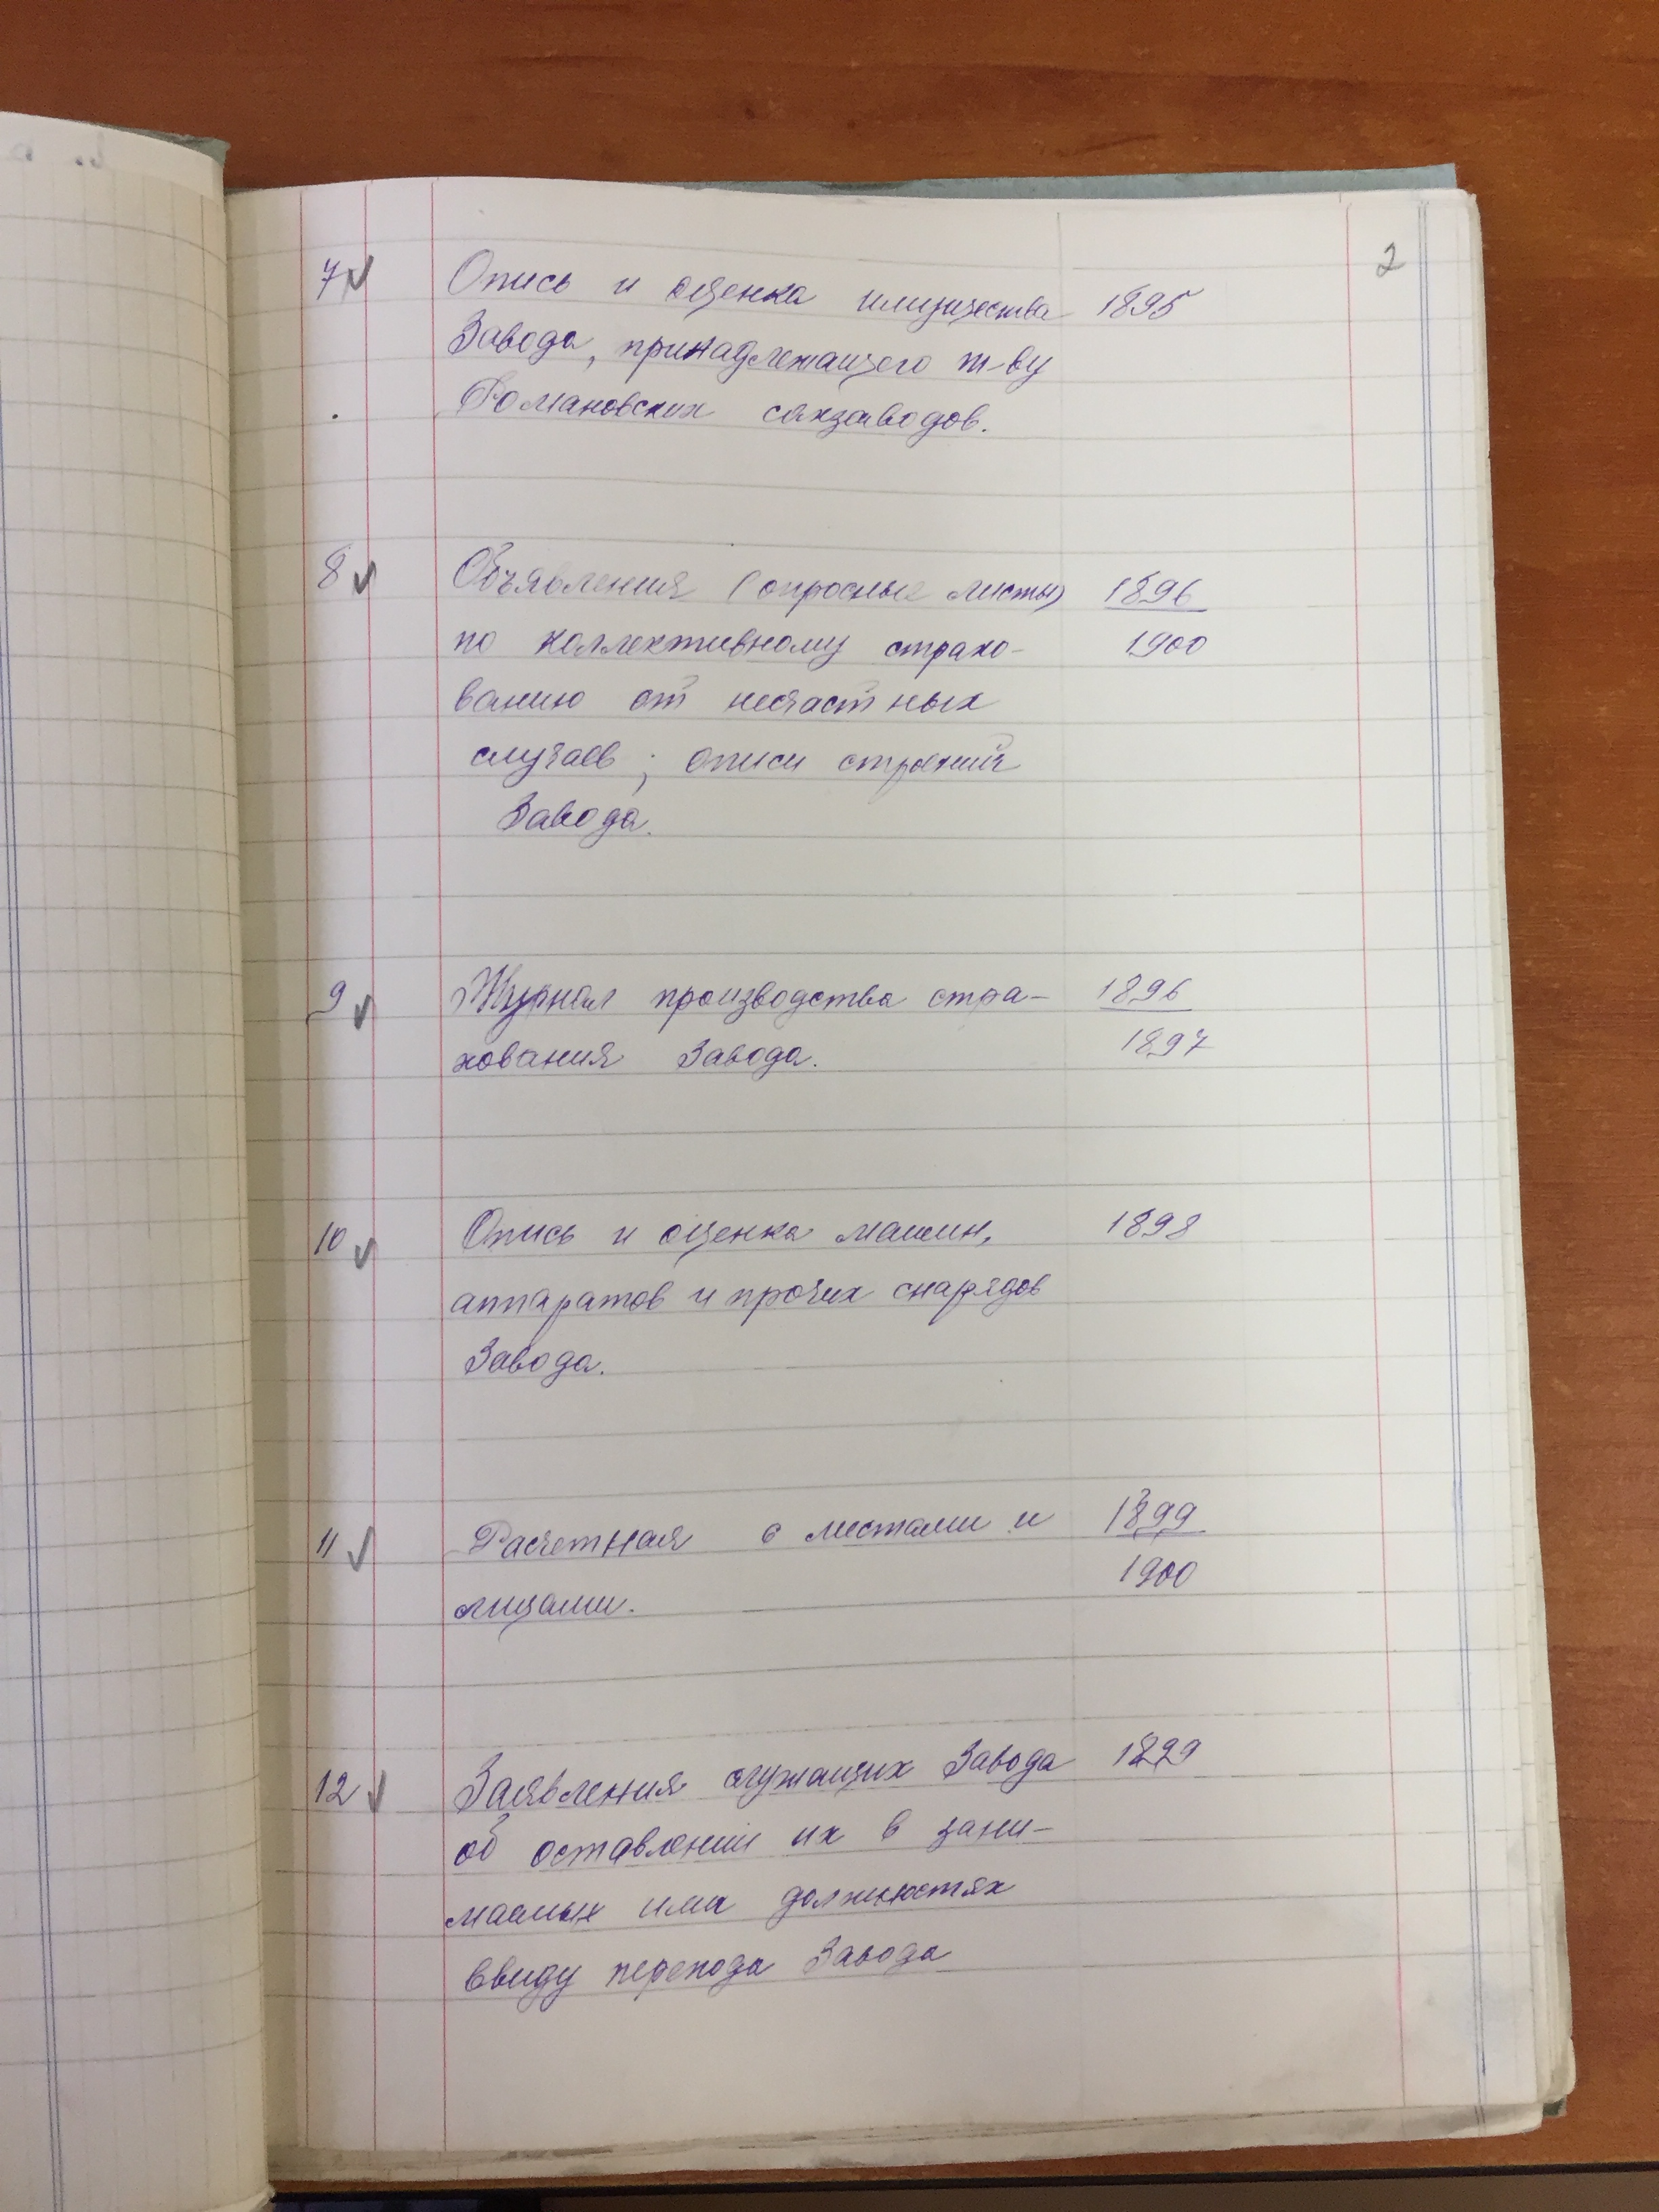 2
7 Опись и оценка имущества 1895
Завода, принадлежащего т-ву
Романовских сахзаводов.
8 Объявления (опросные листы) 1896
по коллективному страхо- 1900
ванию от несчастных
случаев; описи строений
Завода.
9 Журнал производства стра- 1896
хования Завода. 1897
10 Опись и оценка машин, 1898
аппаратов и прочих снарядов
Завода.
11 Расчетная с местами и 1899
лицами. 1900
12 Заявления служащих Завода 1899
об оставлении их в зани-
маемых ими должностях
ввиду перехода Завода